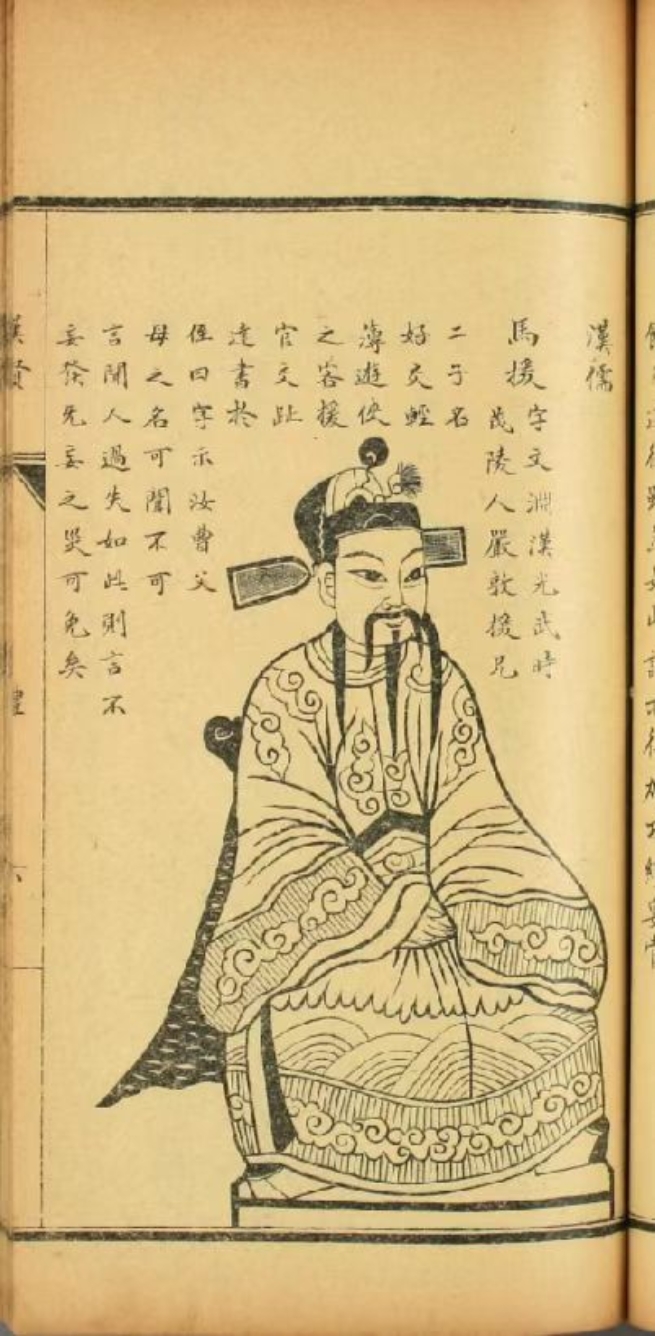 漢儒
馬援
字文淵漢光武時
茂陵人嚴敦援兄
二子名
好交輕
薄遊俠
之客援
官交趾
達書於
侄曰字示汝曹父
母之名可聞不可
言聞人過失如此則言不
妄發无妄之災可免矣
漢賢